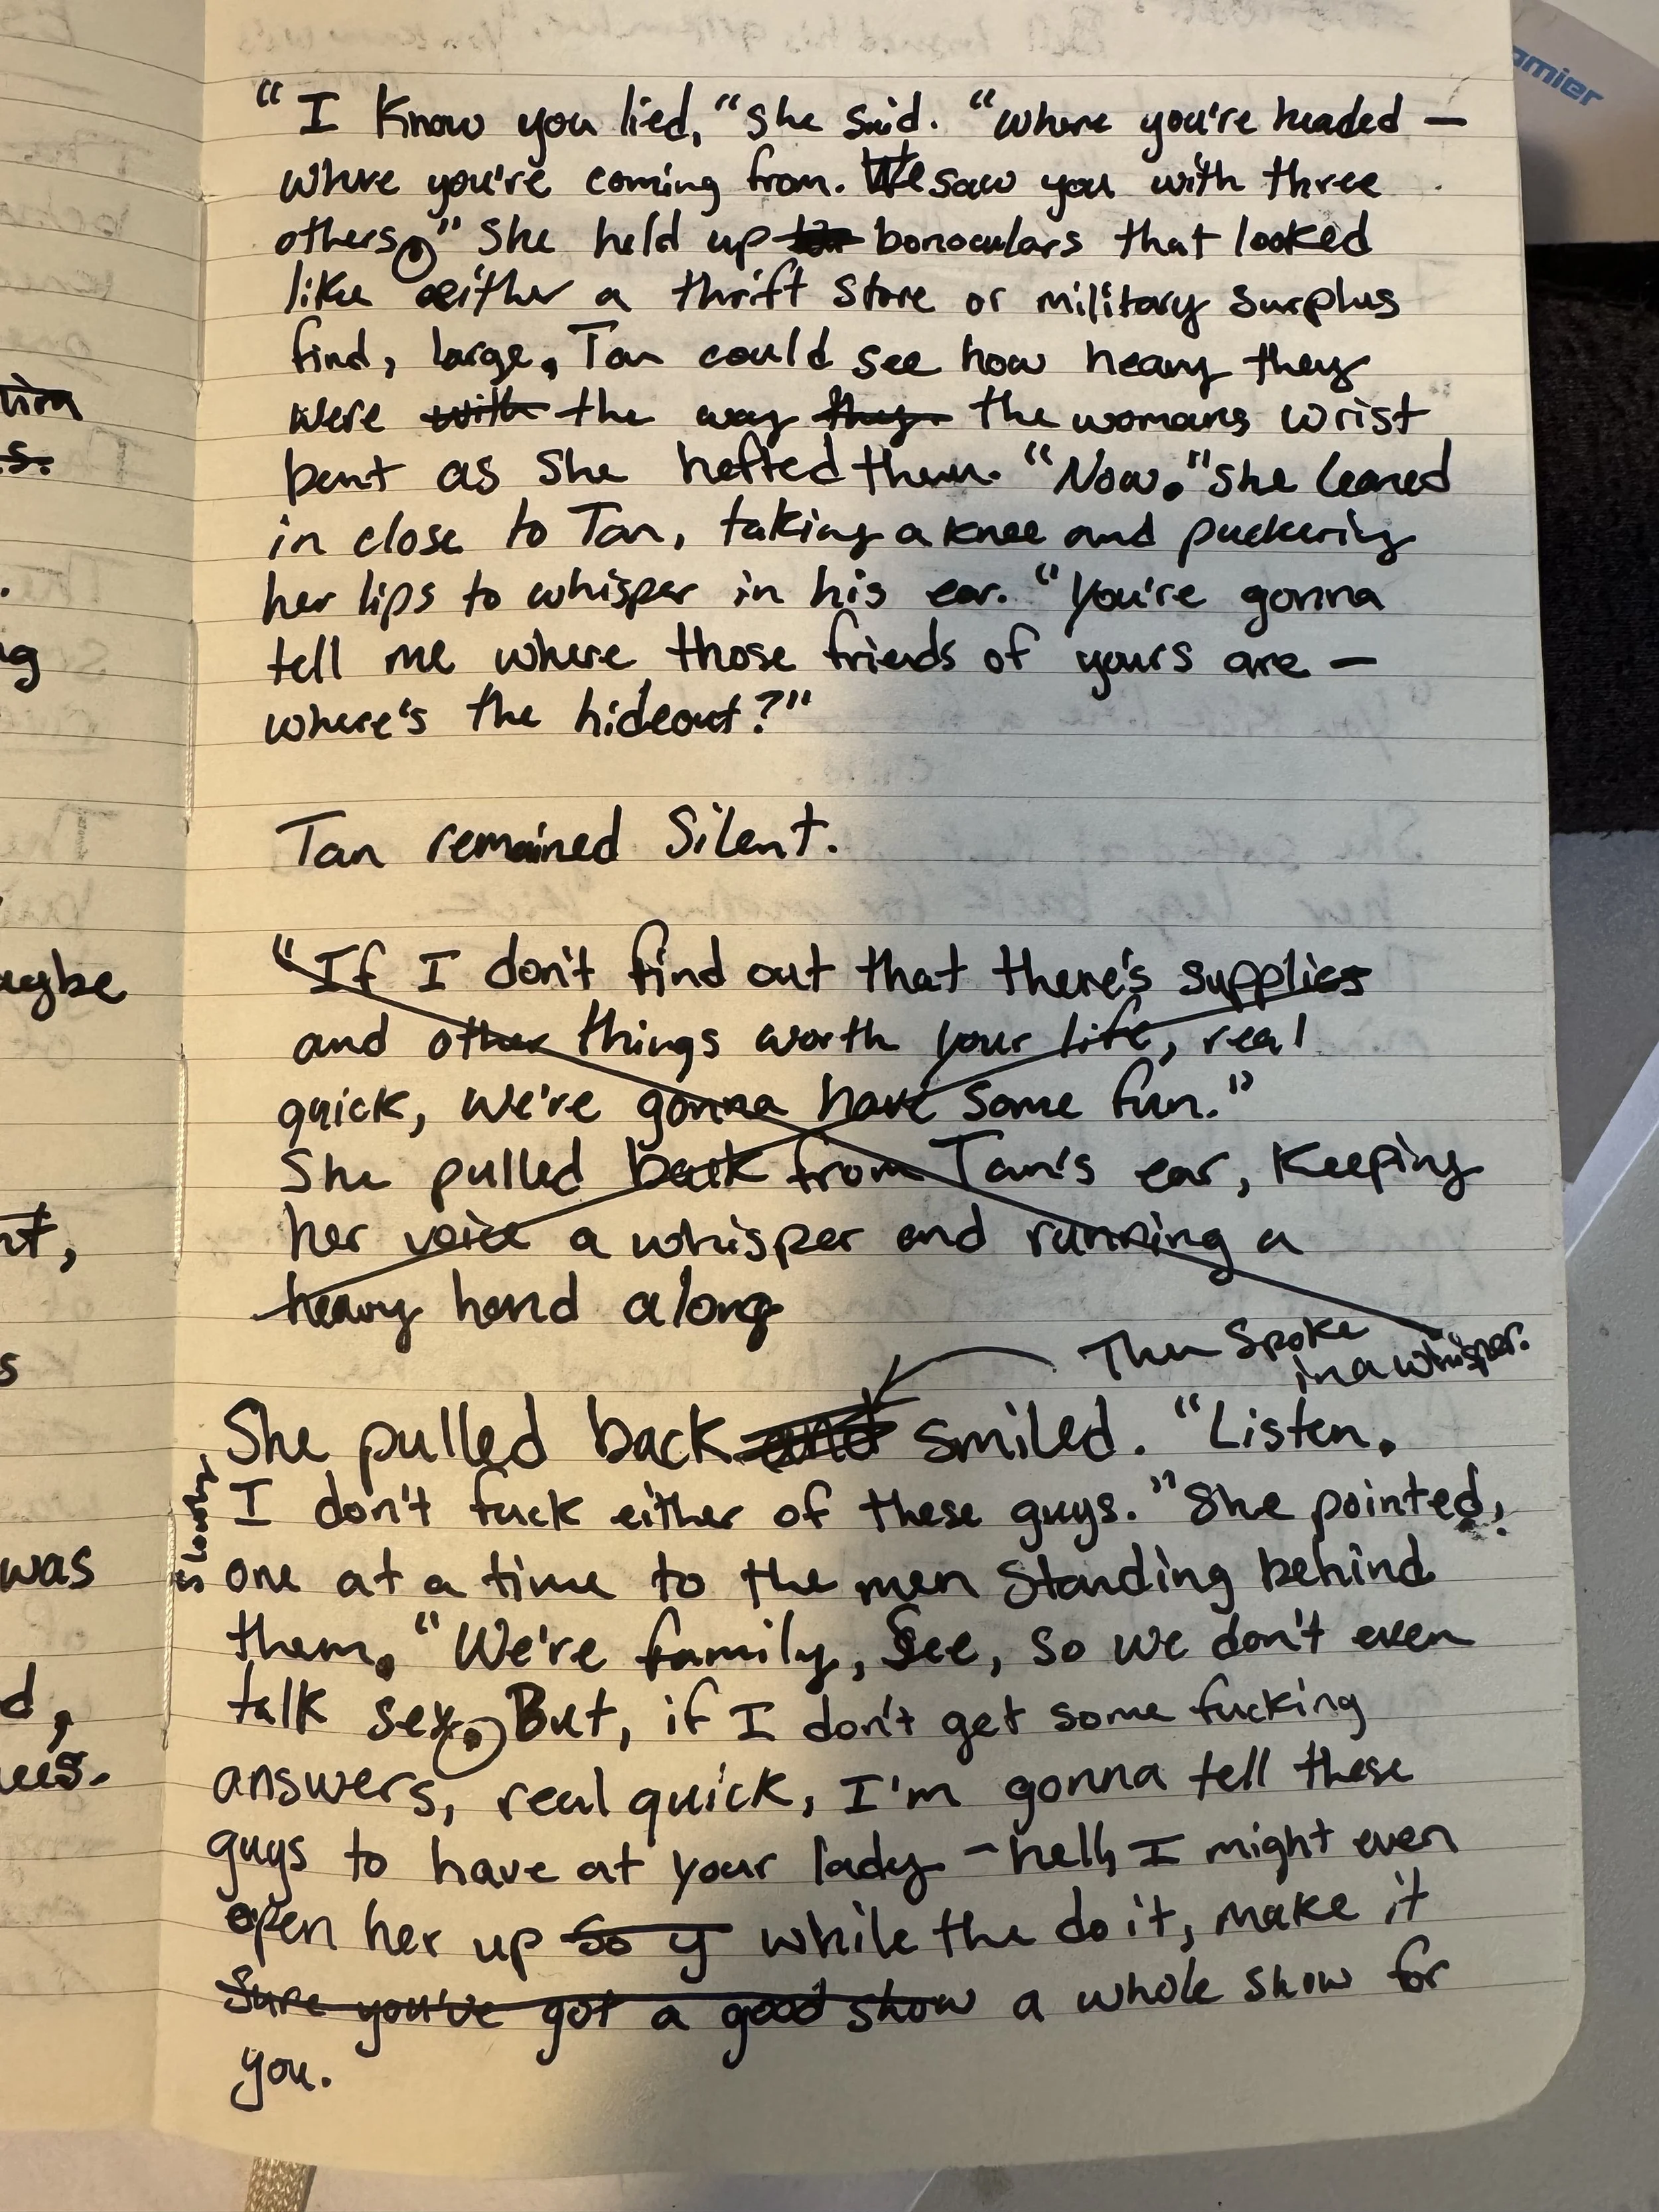 "I know you lied," she said. "where you're headed —
where you're coming from. We saw you with three
others." She held up bonoculars that looked
like either a thrift store or military surplus
find, large. Tan could see how heavy they
were with the way they the womans wrist
bent as she hefted them. "Now." She leaned
in close to Tan, taking a knee and puckering
her lips to whisper in his ear. "You're gonna
tell me where those friends of yours are —
where's the hideout?"
Tan remained silent.
"If I don't find out that there's supplies
and other things worth your life, real
quick, we're gonna have some fun."
She pulled back from Tan's ear, keeping
her voice a whisper and running a
heavy hand along
Then spoke
in a whisper.
She pulled back and smiled. "Listen.
I don't fuck either of these guys." She pointed,
slowly,
one at a time to the men standing behind
them. "We're family, see, so we don't even
talk sex. But, if I don't get some fucking
answers, real quick, I'm gonna tell these
guys to have at your lady — hell, I might even
open her up so y while the do it, make it
sure you've got a good show a whole show for
you.
omier
tion
s.
ng
aybe
nt,
s
was
d,
ees.